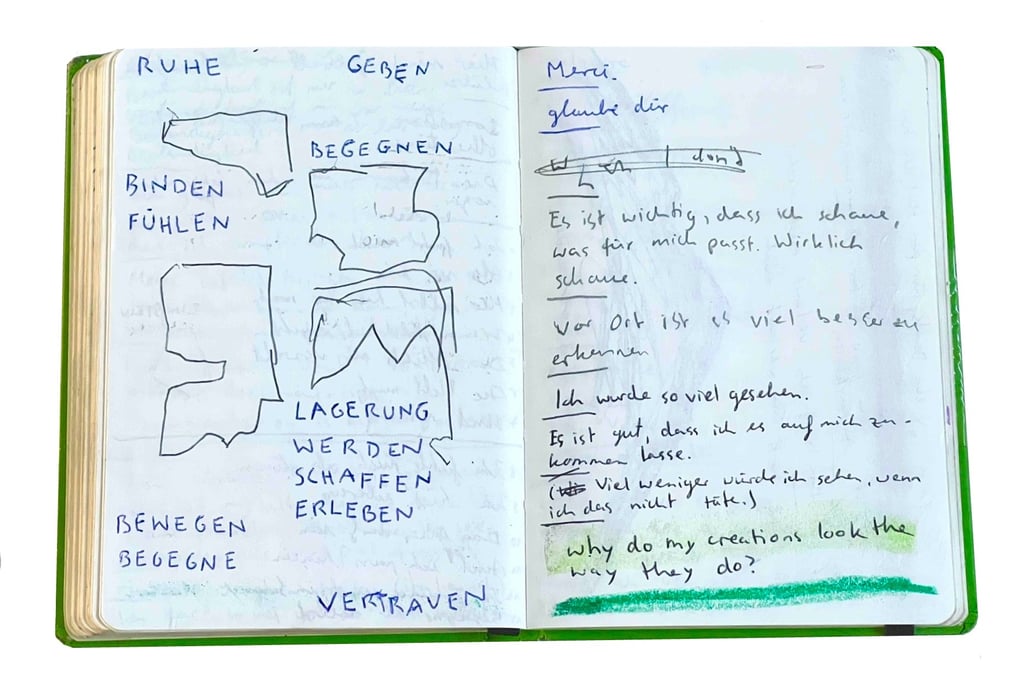 RUHE
GEBEN
BEGEGNEN
BINDEN
FÜHLEN
LAGERUNG
WERDEN
SCHAFFEN
ERLEBEN
BEWEGEN
BEGEGNE
VERTRAUEN
Merci.
glaube dir
Es ist wichtig, dass ich schaue,
was für mich passt. Wirklich
schaue.
Vor Ort ist es viel besser zu
erkennen
Ich wurde so viel gesehen.
Es ist gut, dass ich es auf mich zu-
kommen lasse.
( Viel weniger würde ich sehen, wenn
ich das nicht täte.)
why do my creations look the
way they do?